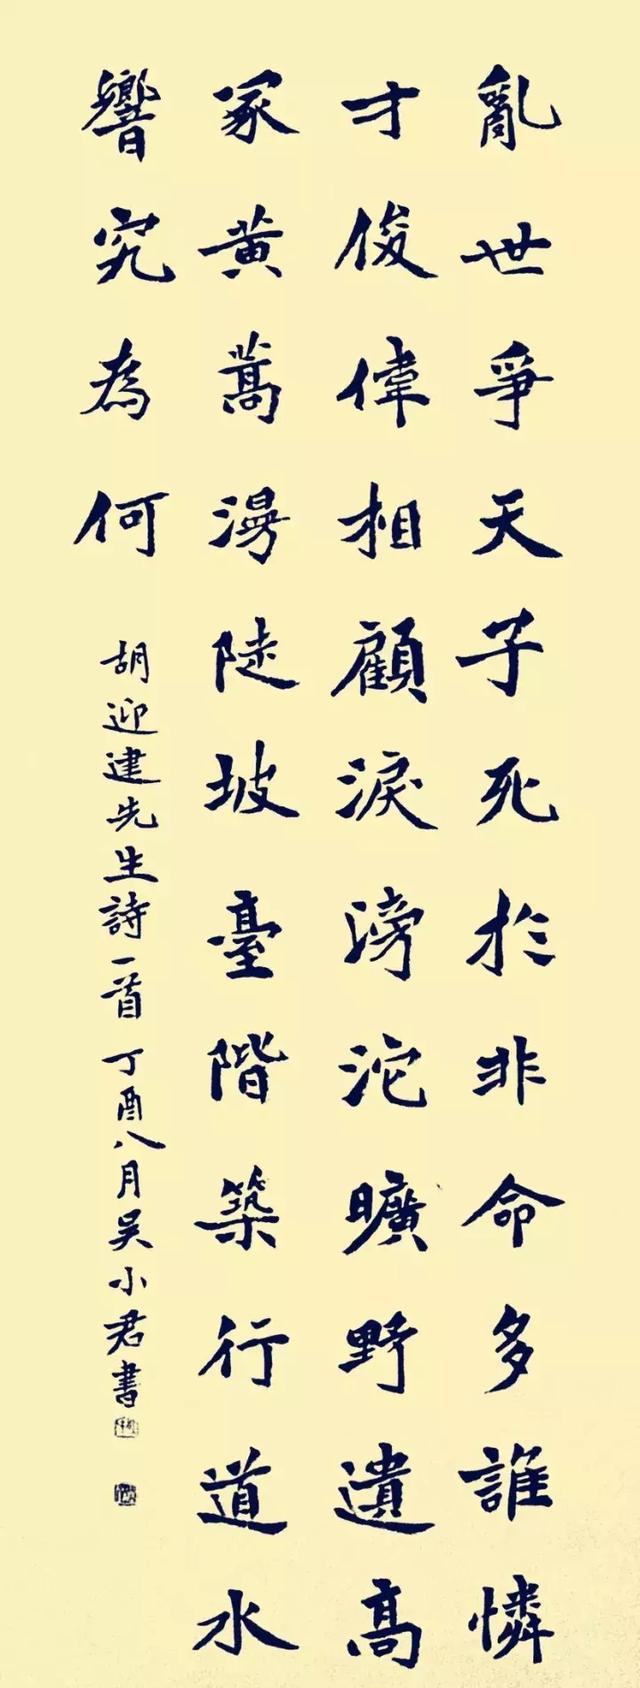 亂世爭天子死於非命多誰憐
才俊偉相顧淚滂沱曠野遺高
冢黄蒿漫陡坡臺階築行道水
響究為何
胡迎建先生詩一首丁酉八月吴小君書